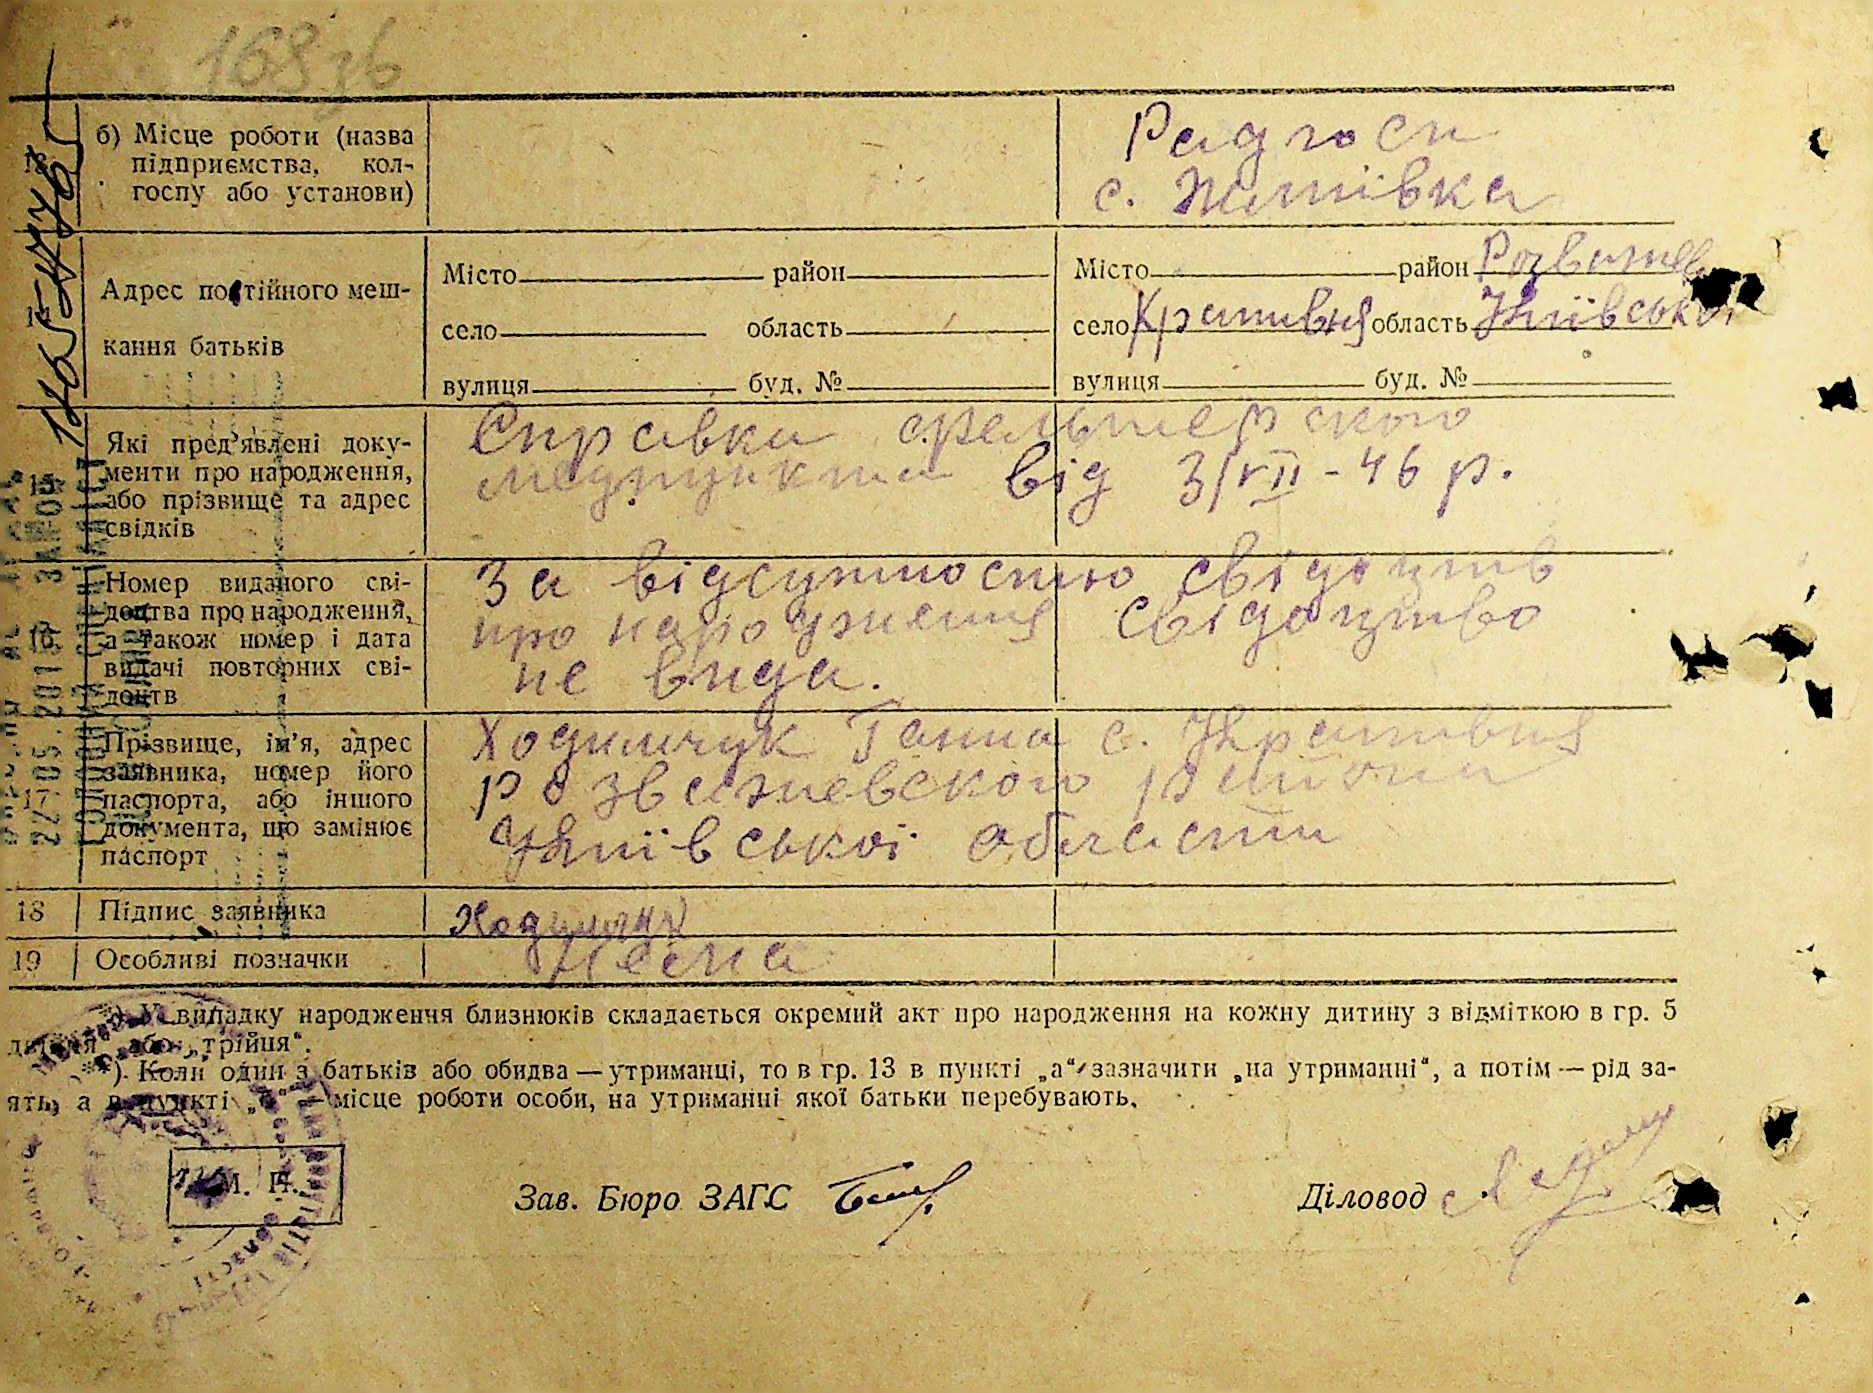 168зв
б) Місце роботи (назва
підприємства, кол-
госпу або установи)
Радгосп
с. Жміївка
Адрес постійного меш-
кання батьків
Місто район
село область
вулиця буд. №
Місто район Розважев
село Крапивня область Київської
вулиця буд. №
15
Які пред'явлені доку-
менти про народження,
або прізвище та адрес
свідків
Справка фельшерского
медпункта від 3/VII - 46 р.
16
Номер виданого сві-
доцтва про народження,
а також номер і дата
видачі повторних сві-
доцтв
За відсутностю свідоцтв
про народження свідоцтво
не вида.
17
Прізвище, ім'я, адрес
заявника, номер його
паспорта, або іншого
документа, що замінює
паспорт
Ходимчук Ганна с. Крапивня
розважевского района
Київської области
18 Підпис заявника
Ходимчук
19 Особливі позначки
Нема
*) У випадку народження близнюків складається окремий акт про народження на кожну дитину з відміткою в гр. 5
двійня" або „трійня".
**) Коли один з батьків або обидва — утриманці, то в гр. 13 в пункті „а" зазначити „на утриманні", а потім — рід за-
ять, а в пункті „б" — місце роботи особи, на утриманні якої батьки перебувають.
М. П.
Зав. Бюро ЗАГС
Діловод